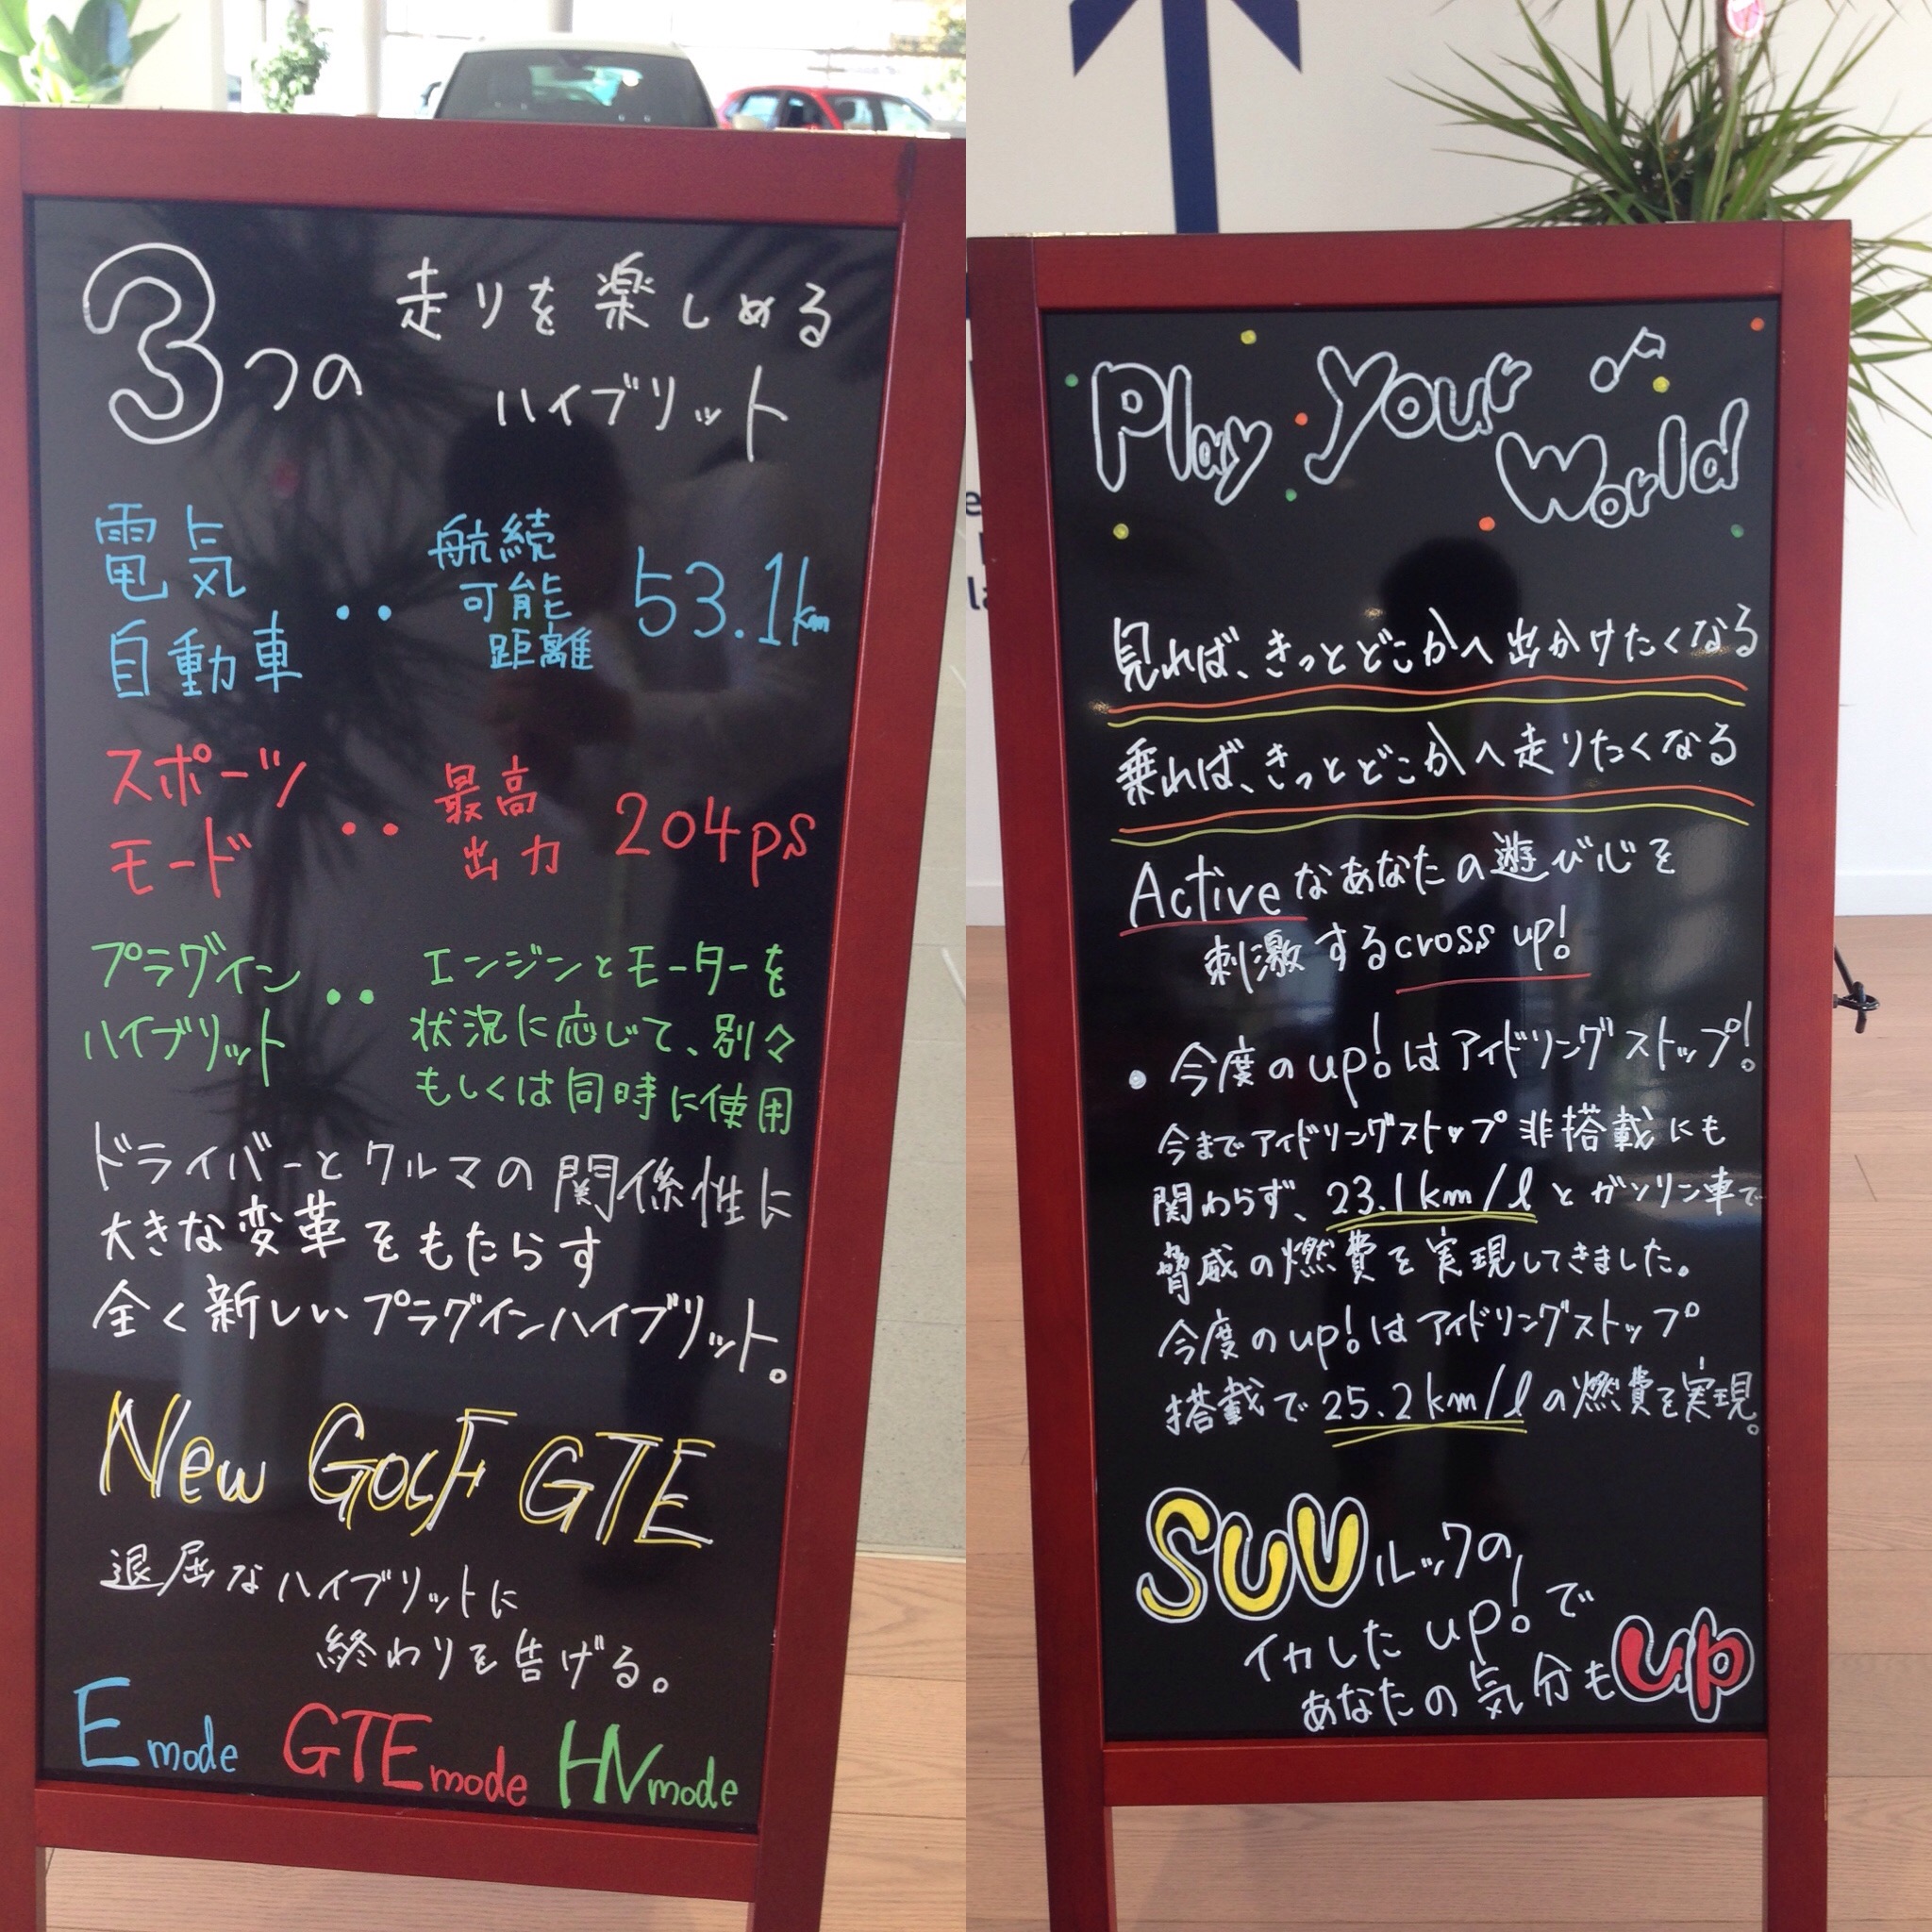 3つの
走りを楽しめる
ハイブリット
電気
自動車
・・
航続
可能
距離
53.1km
スポーツ
モード
・・
最高
出力
204ps
プラグイン
ハイブリット
・・
エンジンとモーターを
状況に応じて、別々
もしくは同時に使用
ドライバーとクルマの関係性に
大きな変革をもたらす
全く新しいプラグインハイブリット。
New GolF GTE
退屈なハイブリットに
終わりを告げる。
E mode GTE mode HV mode
Play Your
World
見れば、きっとどこかへ出かけたくなる
乗れば、きっとどこかへ走りたくなる
Activeなあなたの遊び心を
刺激するcross up!
・今度のup!はアイドリングストップ!
今までアイドリングストップ非搭載にも
関わらず、23.1km/lとガソリン車で
脅威の燃費を実現してきました。
今度のup!はアイドリングストップ
搭載で25.2km/lの燃費を実現。
SUVルックの
イカしたup!で
あなたの気分もup